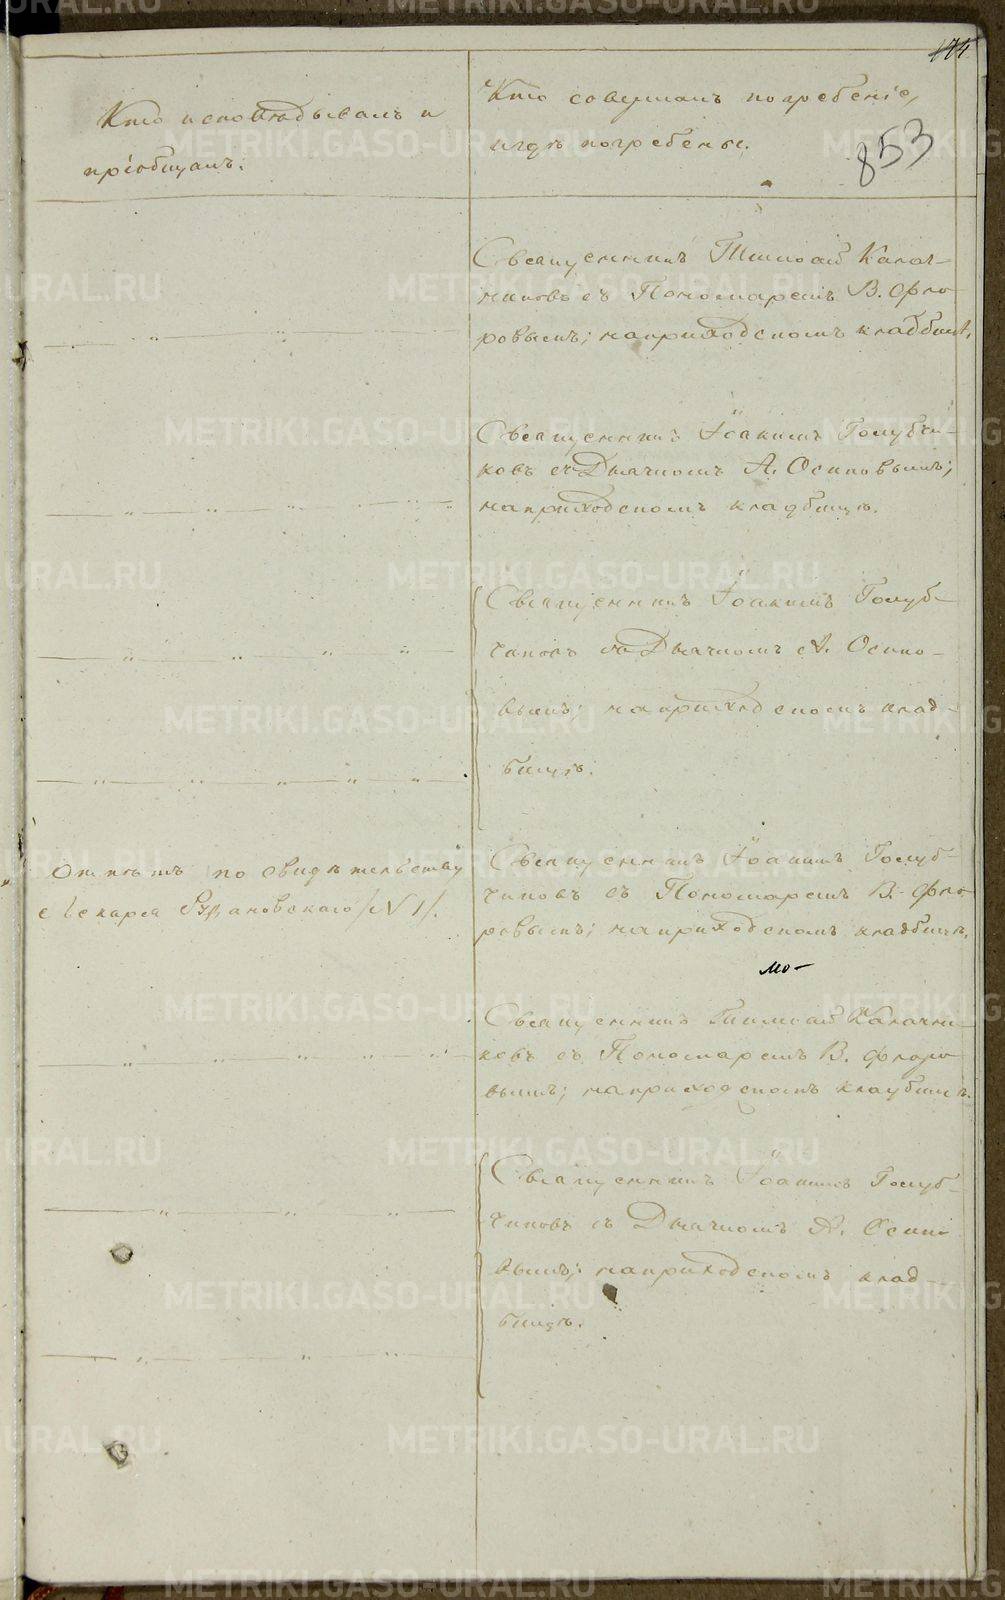 174
853
Кто исповѣдывалъ и
пріобщалъ.
Кто совершалъ погребеніе,
и гдѣ погребены.
Священникъ Тимоѳей Калач-
никовъ съ Пономаремъ В. Фло-
ровымъ; на приходскомъ кладбищѣ.
Священникъ Іоакимъ Голубчи-
ковъ съ Дьячкомъ А. Осиповымъ;
на приходскомъ кладбищѣ.
Священникъ Іоакимъ Голуб-
чиковъ съ Дьячкомъ А. Осипо-
вымъ; на приходскомъ клад-
бищѣ.
Отпѣтъ по свидѣтельству
Лекаря /№ 1/.
Священникъ Іоакимъ Голуб-
чиковъ съ Пономаремъ В. Фло-
ровымъ; на приходскомъ кладбищѣ.
мо-
Священникъ Тимоѳей Калачни-
ковъ съ Пономаремъ В. Флоро-
вымъ; на приходскомъ кладбищѣ.
Священникъ Іоакимъ Голуб-
чиковъ съ Дьячкомъ А. Осипо-
вымъ; на приходскомъ клад-
бищѣ.
METRIKI.GASO-URAL.RU